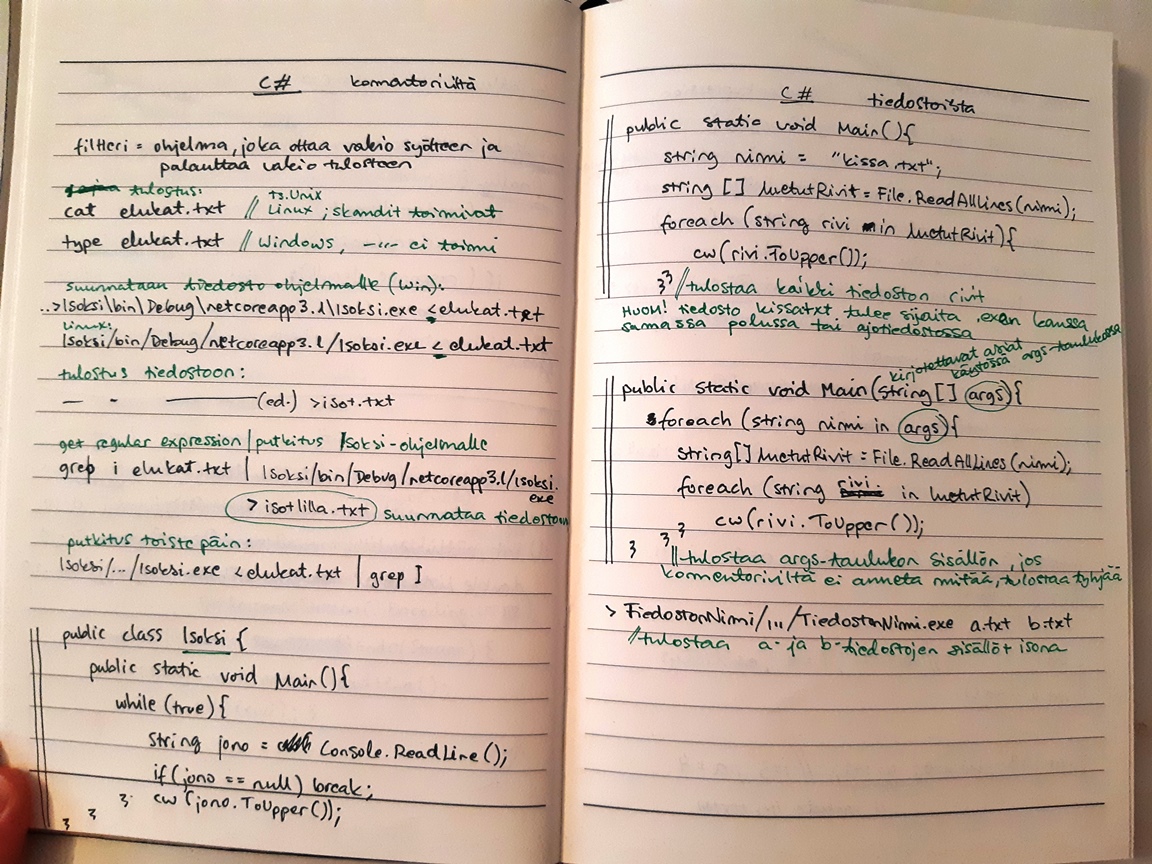 C# komentoriviltä
filtteri = ohjelma, joka ottaa vakio syötteen ja
palauttaa vakio tulosteen
tulostus:
cat elukat.txt // ts. Unix Linux ; skandit toimivat
type elukat.txt // Windows, -"- ei toimi
suunnataan tiedosto ohjelmalle (win):
..>Isoksi\bin\Debug\netcoreapp3.1\Isoksi.exe < elukat.txt
Linux:
Isoksi/bin/Debug/netcoreapp3.1/Isoksi.exe < elukat.txt
tulostus tiedostoon:
— " — (ed.) >isot.txt
get regular expression | putkitus Isoksi-ohjelmalle
grep i elukat.txt | Isoksi/bin/Debug/netcoreapp3.1/Isoksi.
exe
> isotIlla.txt suunnataa tiedostoon
putkitus toiste päin:
Isoksi/.../Isoksi.exe < elukat.txt | grep I
public class Isoksi {
public static void Main(){
while (true){
string jono = Console.ReadLine();
if(jono == null) break;
} cw(jono.ToUpper());
} }
C# tiedostoista
public static void Main(){
string nimi = "kissa.txt";
string [] luetutRivit = File.ReadAllLines(nimi);
foreach (string rivi in luetutRivit){
cw(rivi.ToUpper());
}} //tulostaa kaikki tiedoston rivit
HUOM! tiedosto kissa.txt tulee sijaita .exen kanssa
samassa polussa tai ajotiedostossa
kirjotettavat asiat
käytössä args-taulukossa
public static void Main(string[] args){
foreach (string nimi in args){
string[] luetutRivit = File.ReadAllLines(nimi);
foreach (string rivi in luetutRivit)
cw(rivi.ToUpper());
} } }
//tulostaa args-taulukon sisällön, jos
komentoriviltä ei anneta mitää, tulostaa tyhjää
> TiedostonNimi/.../TiedostonNimi.exe a.txt b.txt
//tulostaa a- ja b-tiedostojen sisällöt isona